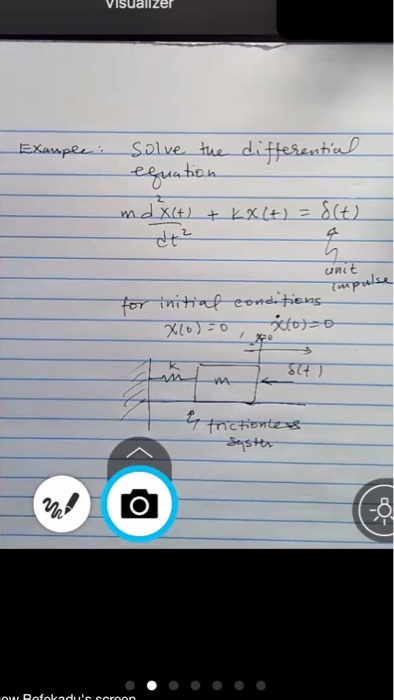 Visualizer
Example: Solve the differential
equation
m d²x(t)/dt² + kx(t) = δ(t)
unit
impulse
for initial conditions
x(0)=0 , ẋ(0)=0
x=0
k
m
δ(t)
frictionless
System
ow Rofokadu's screen